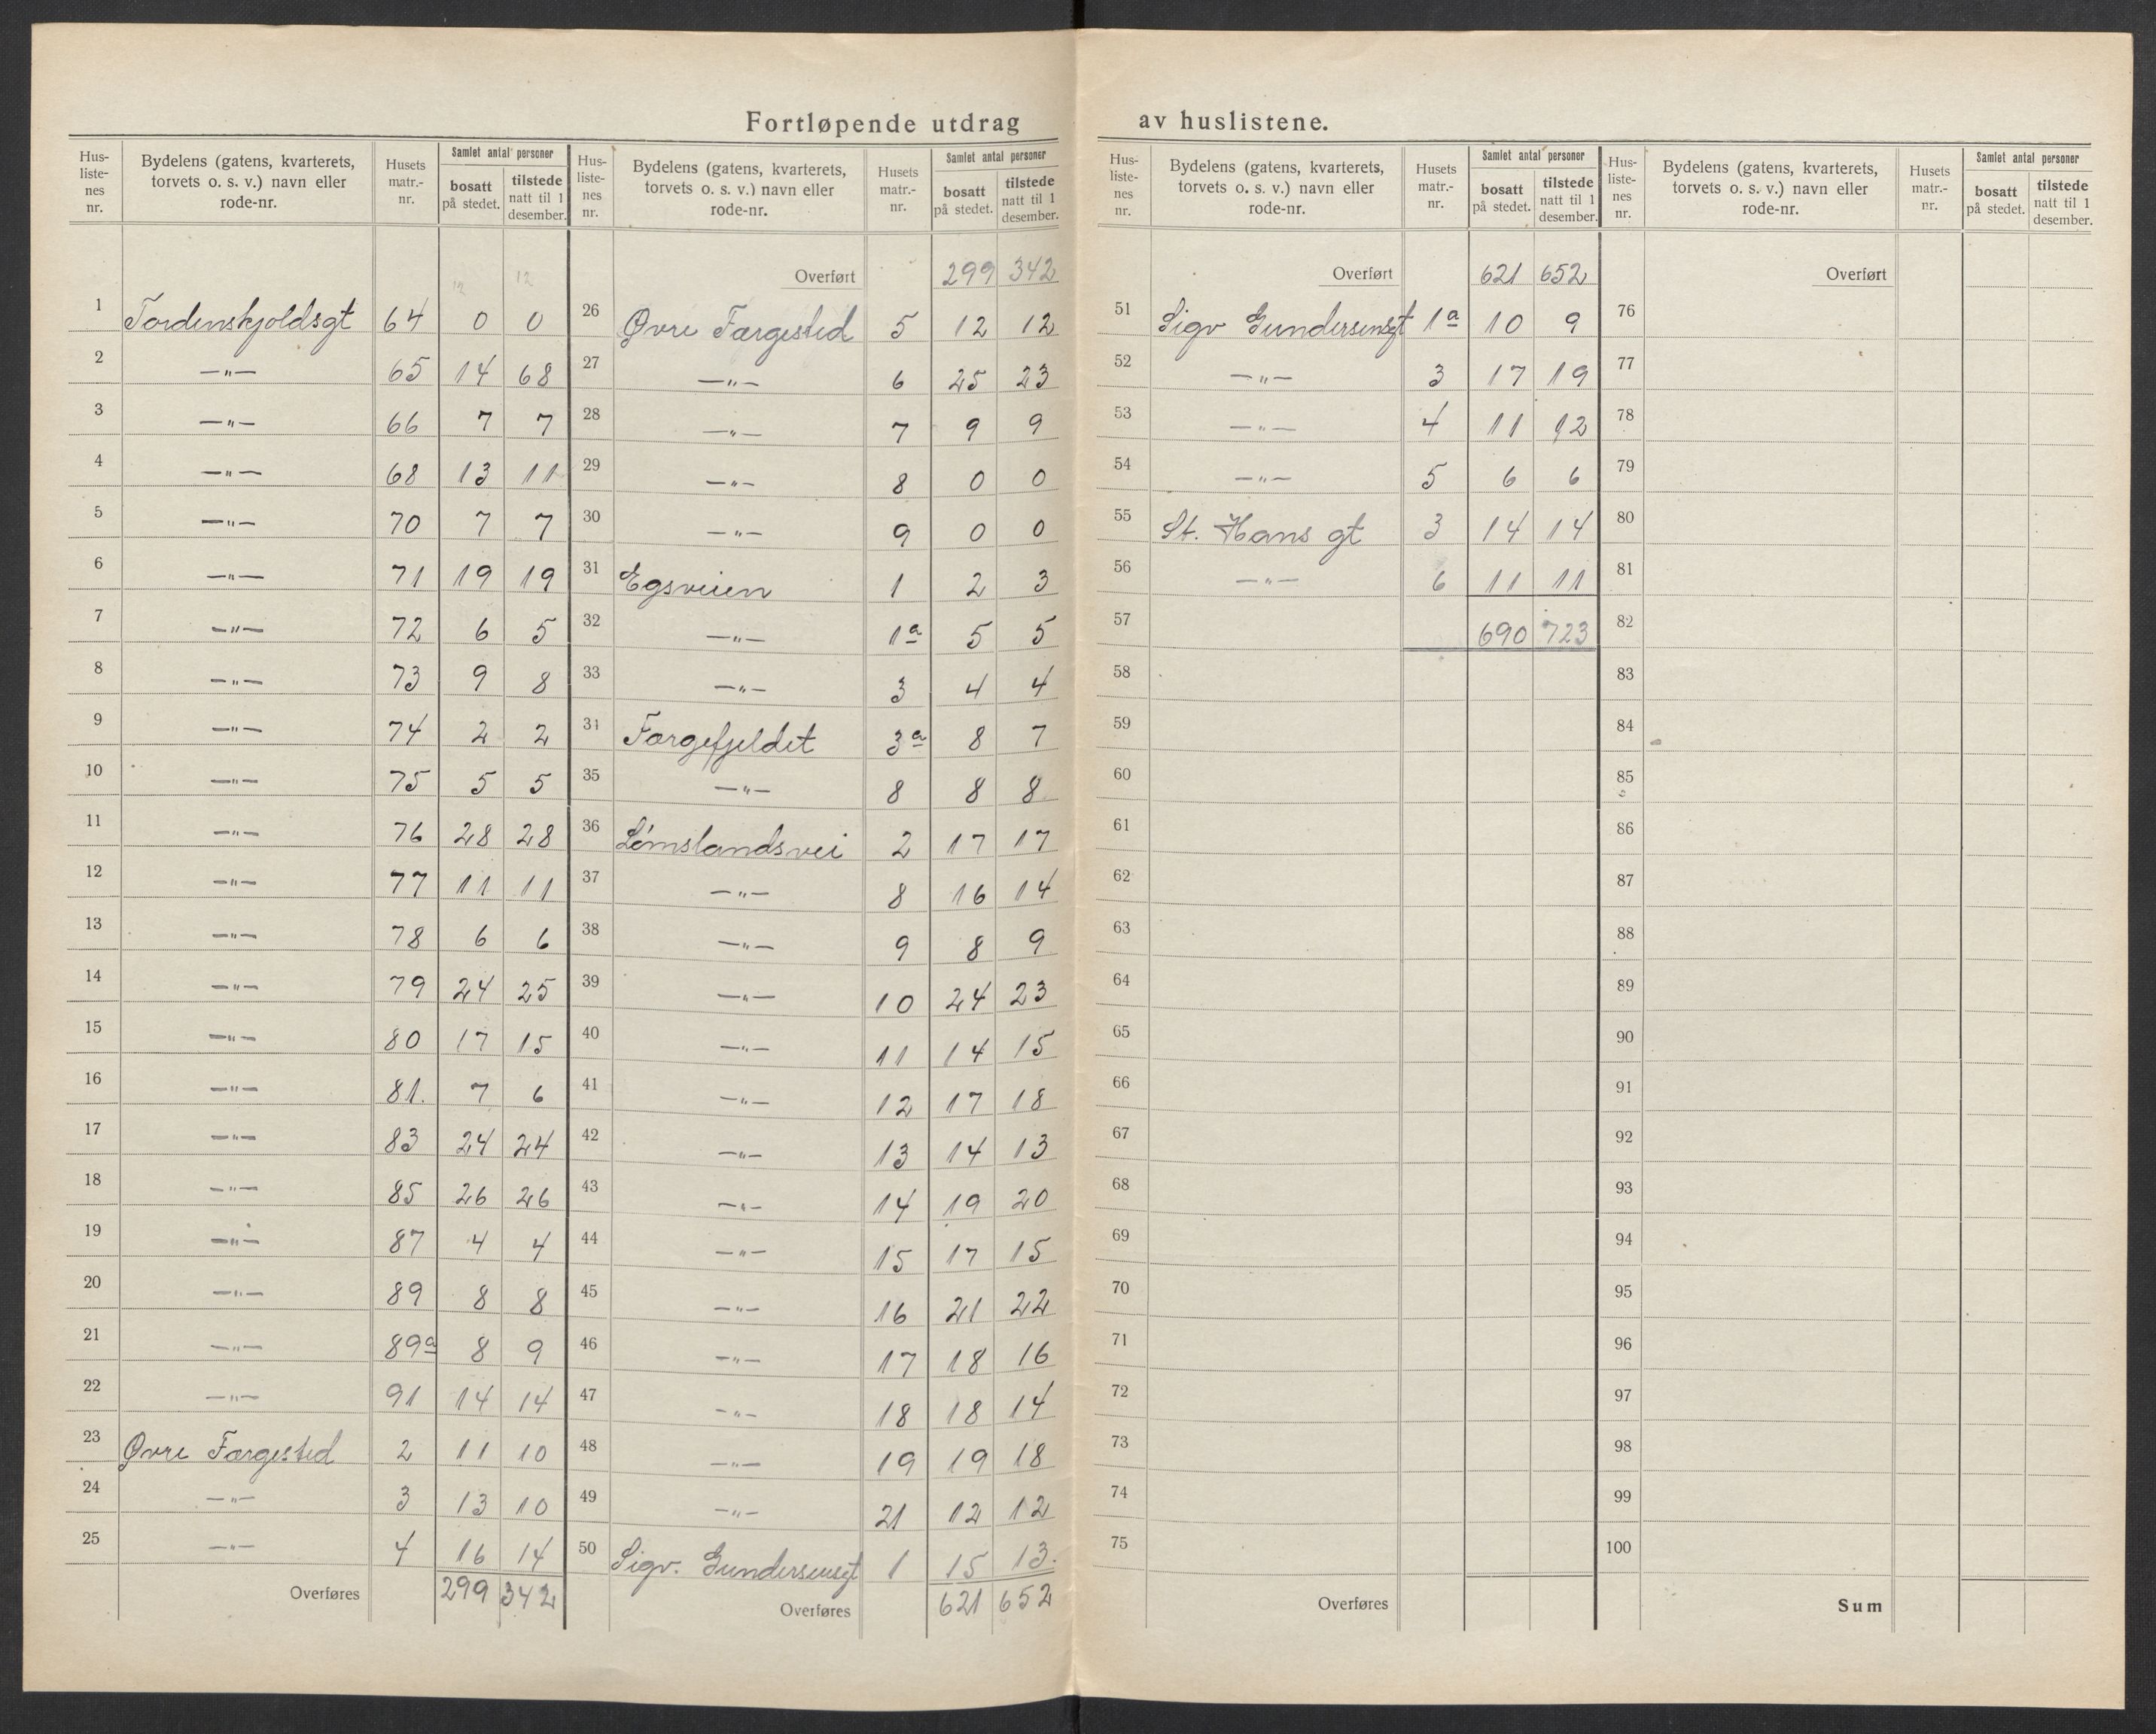 Fortløpende utdrag av huslistene.
Hus-listenes nr. | Bydelens (gatens, kvarterets, torvets o. s. v.) navn eller rode-nr. | Husets matr.-nr. | Samlet antal personer bosatt på stedet. | tilstede natt til 1 desember.
12 12
1 Tordenskjoldsgt 64 0 0
2 —"— 65 14 68
3 —"— 66 7 7
4 —"— 68 13 11
5 —"— 70 7 7
6 —"— 71 19 19
7 —"— 72 6 5
8 —"— 73 9 8
9 —"— 74 2 2
10 —"— 75 5 5
11 —"— 76 28 28
12 —"— 77 11 11
13 —"— 78 6 6
14 —"— 79 24 25
15 —"— 80 17 15
16 —"— 81. 7 6
17 —"— 83 24 24
18 —"— 85 26 26
19 —"— 87 4 4
20 —"— 89 8 8
21 —"— 89a 8 9
22 —"— 91 14 14
23 Øvre Færgested 2 11 10
24 —"— 3 13 10
25 —"— 4 16 14
Overføres 299 342
Hus-listenes nr. | Bydelens (gatens, kvarterets, torvets o. s. v.) navn eller rode-nr. | Husets matr.-nr. | Samlet antal personer bosatt på stedet. | tilstede natt til 1 desember.
Overført 299 342
26 Øvre Færgested 5 12 12
27 —"— 6 25 23
28 —"— 7 9 9
29 —"— 8 0 0
30 —"— 9 0 0
31 Egsveien 1 2 3
32 —"— 1a 5 5
33 —"— 3 4 4
34 Færgefjeldet 3a 8 7
35 —"— 8 8 8
36 Lømslandsvei 2 17 17
37 —"— 8 16 14
38 —"— 9 8 9
39 —"— 10 24 23
40 —"— 11 14 15
41 —"— 12 17 18
42 —"— 13 14 13
43 —"— 14 19 20
44 —"— 15 17 15
45 —"— 16 21 22
46 —"— 17 18 16
47 —"— 18 18 14
48 —"— 19 19 18
49 —"— 21 12 12
50 Sigv. Gundersensgt 1 15 13.
Overføres 621 652
Hus-listenes nr. | Bydelens (gatens, kvarterets, torvets o. s. v.) navn eller rode-nr. | Husets matr.-nr. | Samlet antal personer bosatt på stedet. | tilstede natt til 1 desember.
Overført 621 652
51 Sigv Gundersensgt 1a 10 9
52 —"— 3 17 19
53 —"— 4 11 12
54 —"— 5 6 6
55 St. Hans gt 3 14 14
56 —"— 6 11 11
57 690 723
58
59
60
61
62
63
64
65
66
67
68
69
70
71
72
73
74
75
Overføres
Hus-listenes nr. | Bydelens (gatens, kvarterets, torvets o. s. v.) navn eller rode-nr. | Husets matr.-nr. | Samlet antal personer bosatt på stedet. | tilstede natt til 1 desember.
Overført
76
77
78
79
80
81
82
83
84
85
86
87
88
89
90
91
92
93
94
95
96
97
98
99
100
Sum